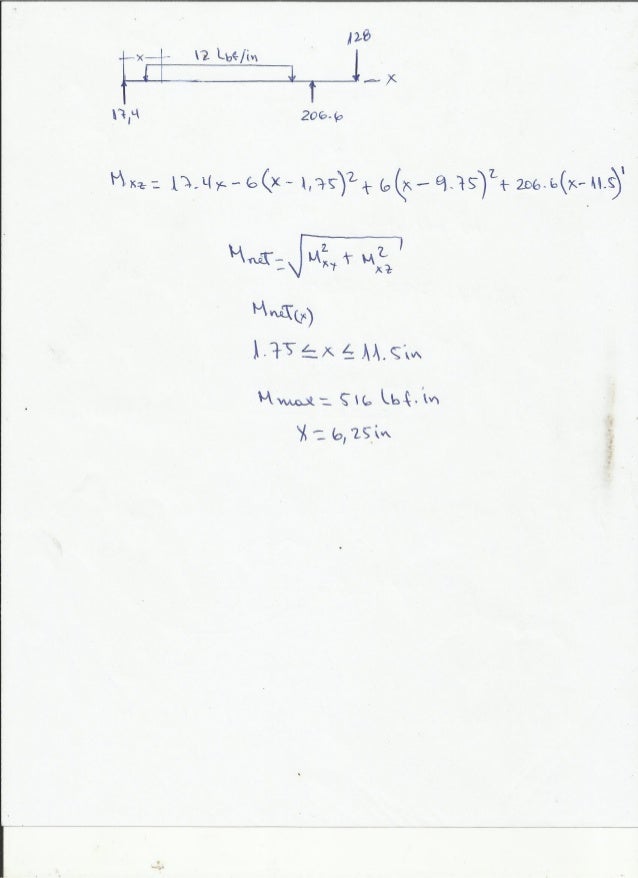 128
x 12 lbf/in
x
17,4 206.6
Mxz = 17.4x - 6(x - 1,75)² + 6(x - 9.75)² + 206.6(x - 11.5)¹
Mnet = √(M²xy + M²xz)
Mnet(x)
1.75 ≤ x ≤ 11.5in
Mmax = 516 lbf.in
X = 6,25in